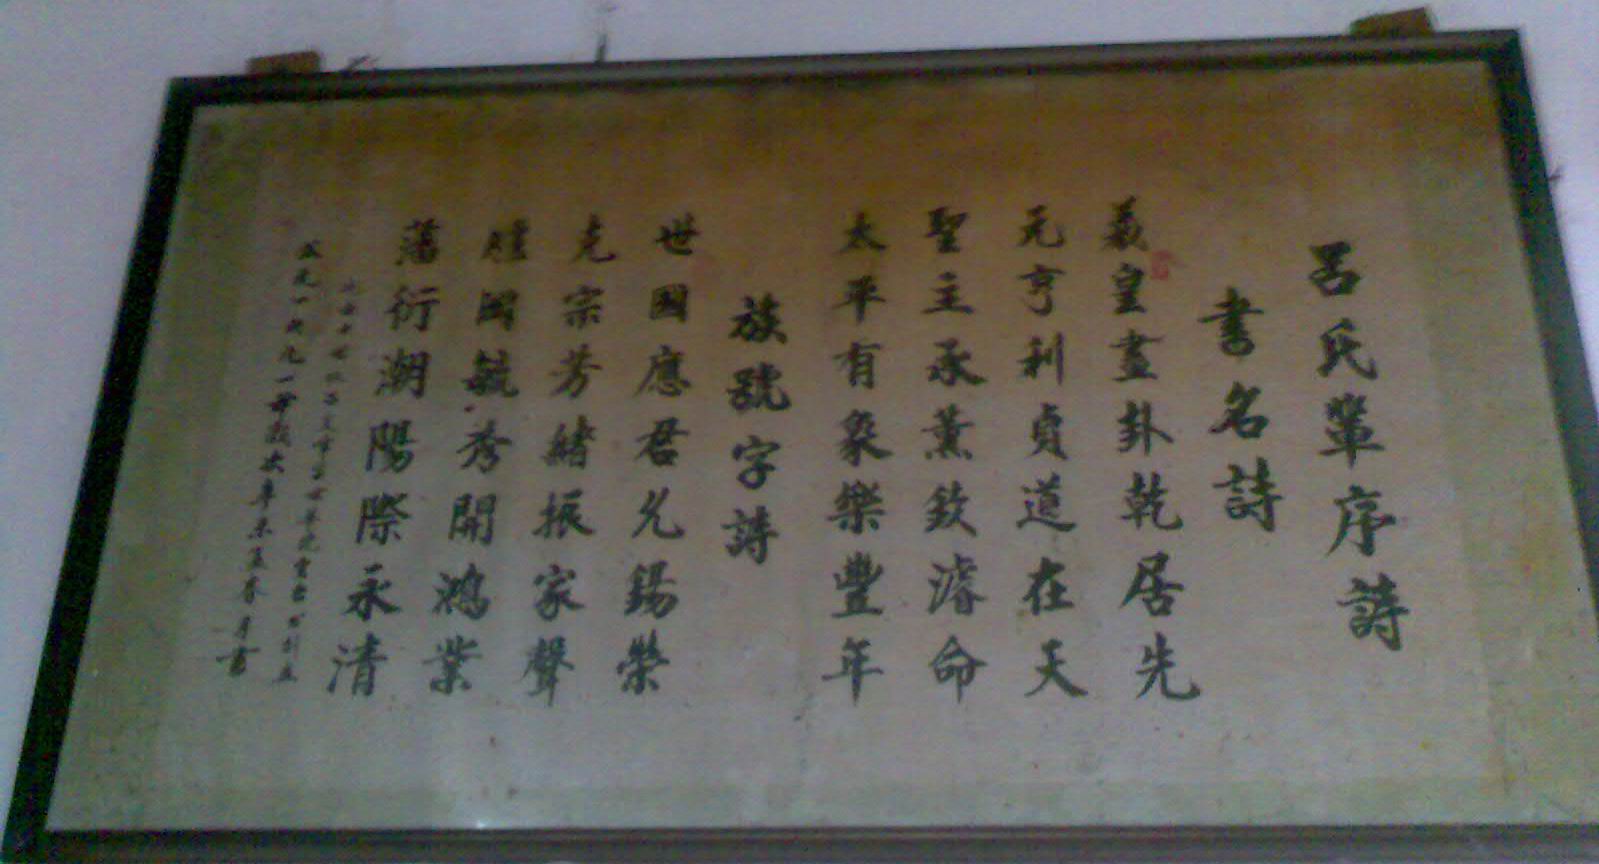 呂氏輩序詩
書名詩
羲皇畫卦乾居先
元亨利貞道在天
聖主承薰致濬命
太平有象樂豐年
族號字詩
世國應君允錫榮
克宗芳緒振家聲
國毓秀開鴻業
藩衍潮陽際永清
公元一九九一年歲次辛未孟春月書